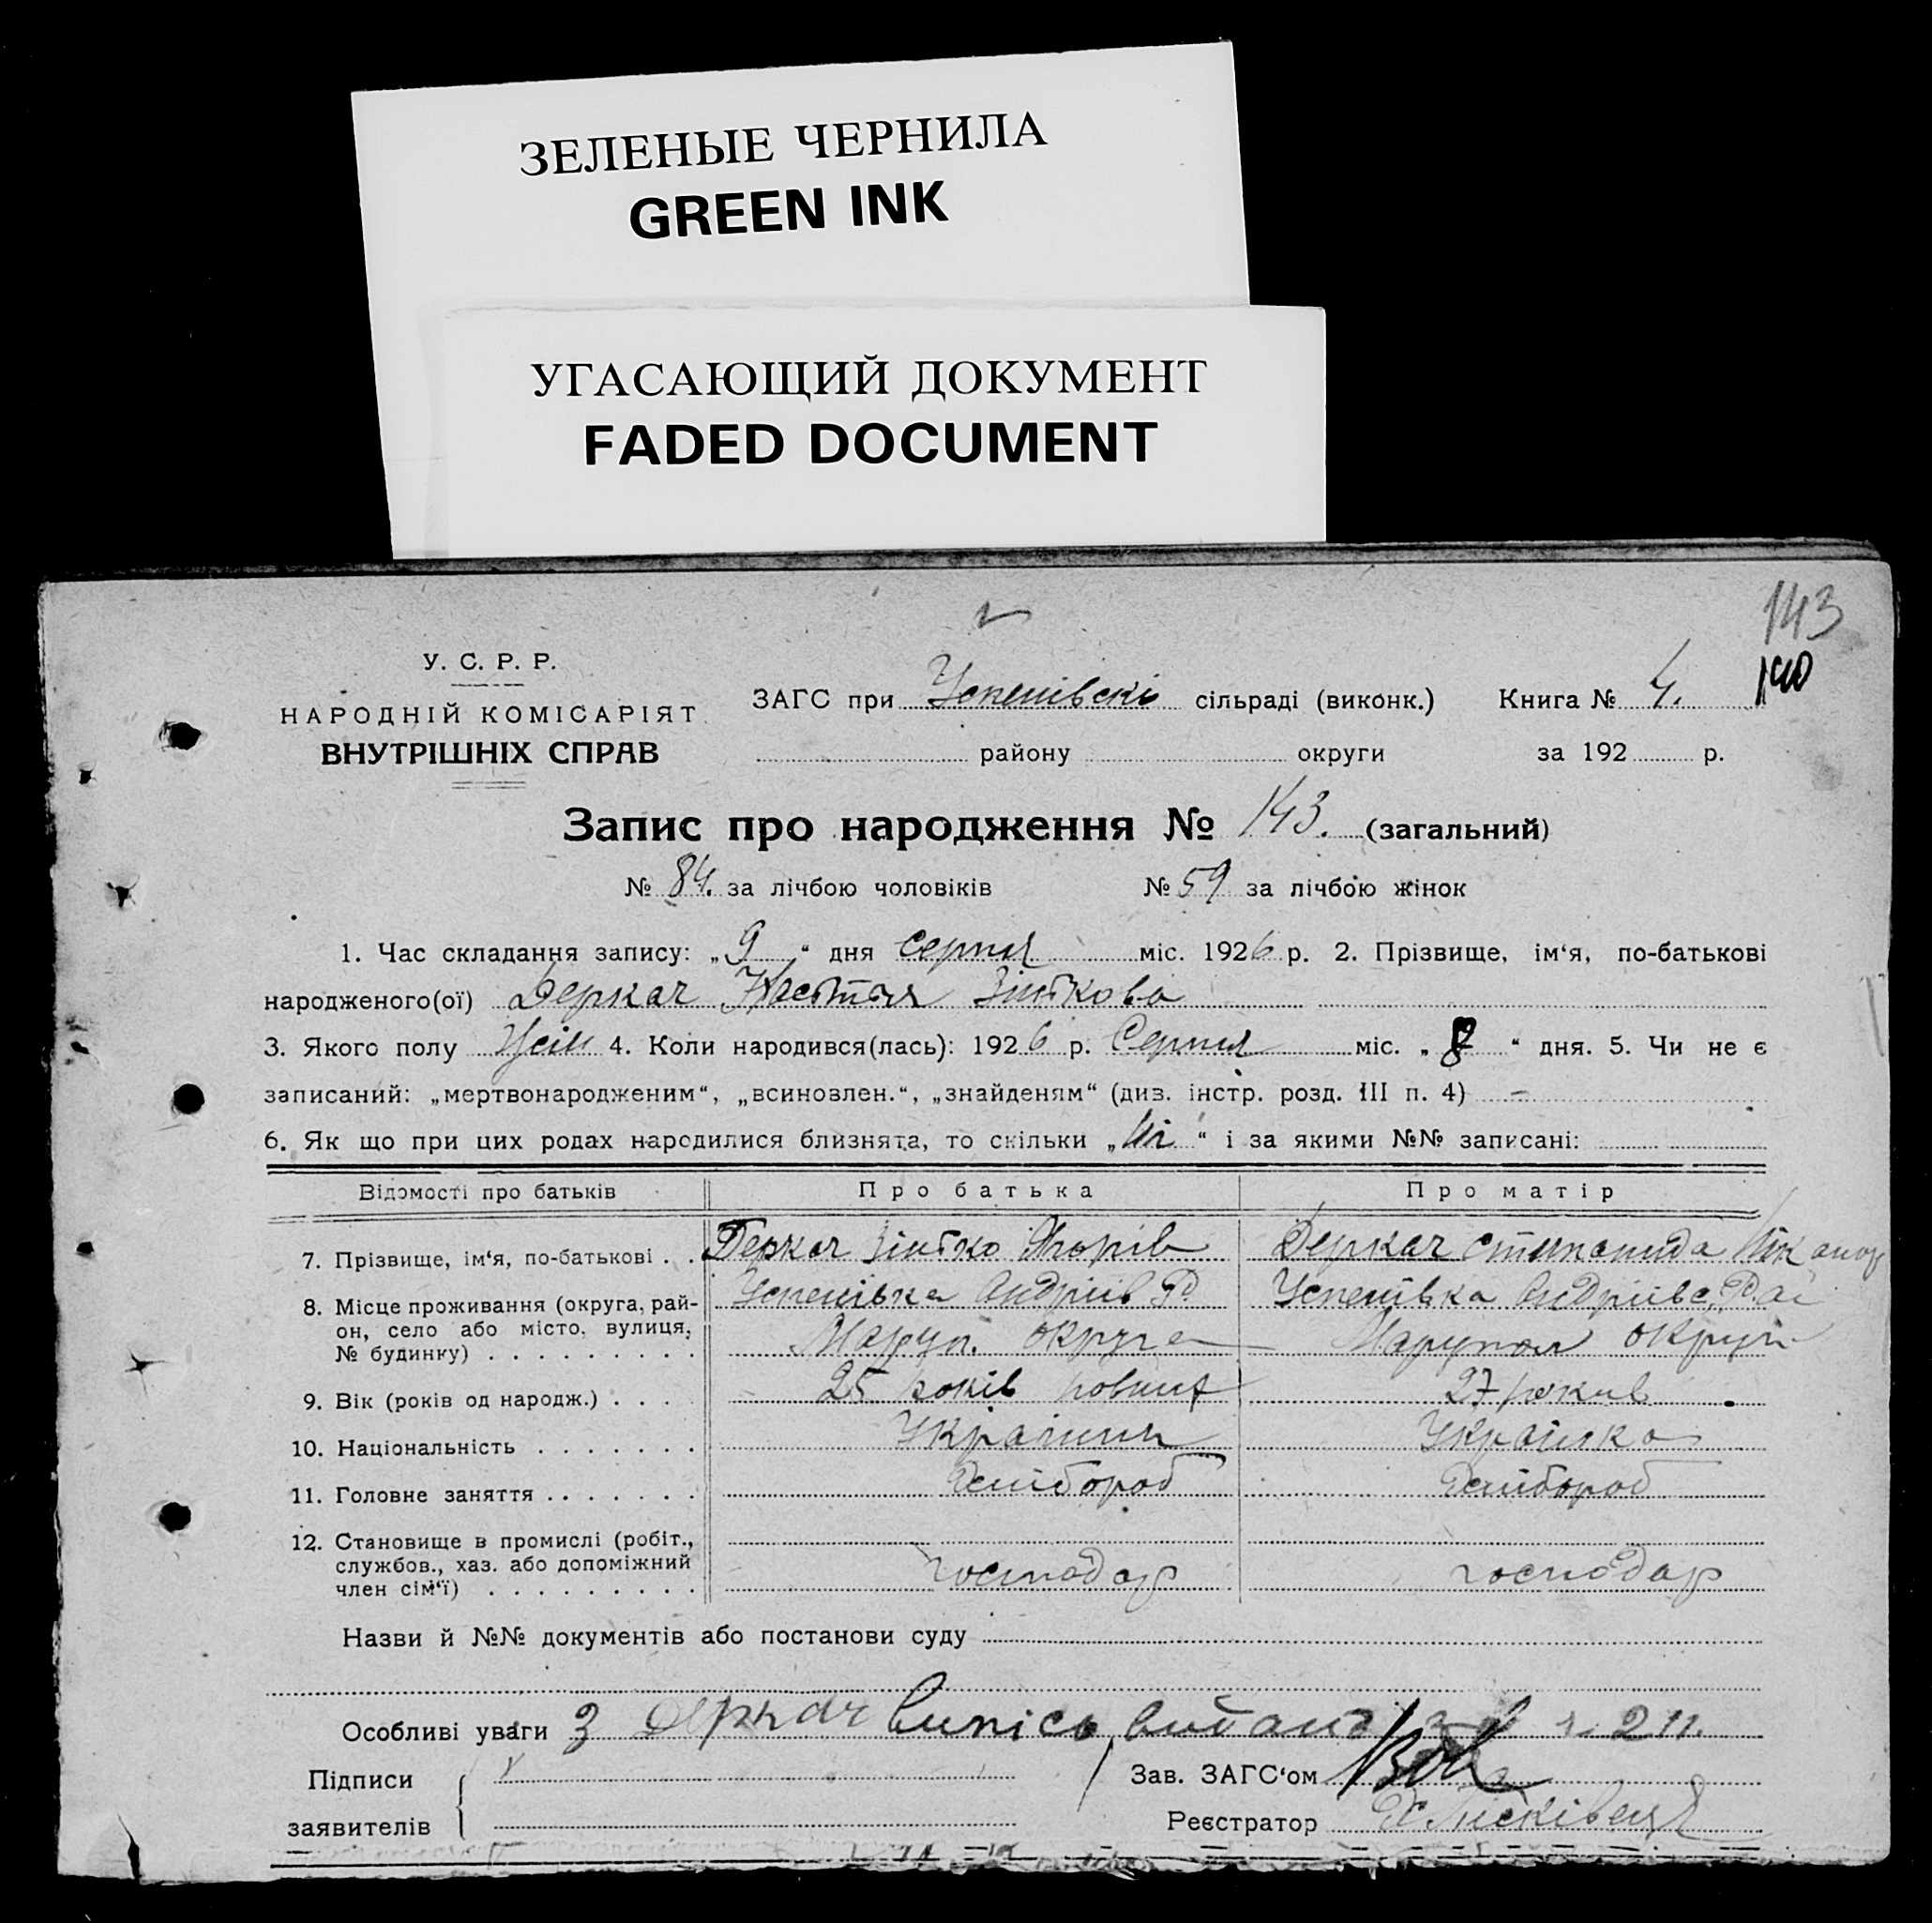 ЗЕЛЕНЫЕ ЧЕРНИЛА
GREEN INK
УГАСАЮЩИЙ ДОКУМЕНТ
FADED DOCUMENT
143
140
У. С. Р. Р.
НАРОДНІЙ КОМІСАРІЯТ
ВНУТРІШНІХ СПРАВ
ЗАГС при Успенівскі сільраді (виконк.) Книга № 4.
району округи за 192 р.
Запис про народження № 143. (загальний)
№ 84. за лічбою чоловіків № 59 за лічбою жінок
1. Час складання запису: „9“ дня серпня міс. 1926 р. 2. Прізвище, ім‘я, по-батькові
народженого(ої) Деркач Настя
3. Якого полу 4. Коли народився(лась): 1926 р. Серпня міс. „8“ дня. 5. Чи не є
записаний: „мертвонародженим“, „всиновлен.“, „знайденям“ (див. інстр. розд. III п. 4) –
6. Як що при цих родах народилися близнята, то скільки „Ні“ і за якими №№ записані:
Відомості про батьків Про батька Про матір
7. Прізвище, ім‘я, по-батькові . . Деркач Деркач
8. Місце проживання (округа, рай-
он, село або місто, вулиця,
№ будинку) . . . . . . . . .
Успенівка Андріїв Р. Успенівка Андріївс. Рай
Маруп. округа Марупол округи
9. Вік (років од народж.) . . . . 25 років 27 рокив
10. Національність . . . . . . . Українка
11. Головне заняття . . . . . . . Хлібороб Хлібороб
12. Становище в промислі (робіт.,
службов., хаз. або допоміжний
член сім‘ї) . . . . . . . . .
господар господар
Назви й №№ документів або постанови суду
Особливі уваги 3 Деркач випісь видана
Підписи
заявителів
Зав. ЗАГС‘ом
Реєстратор